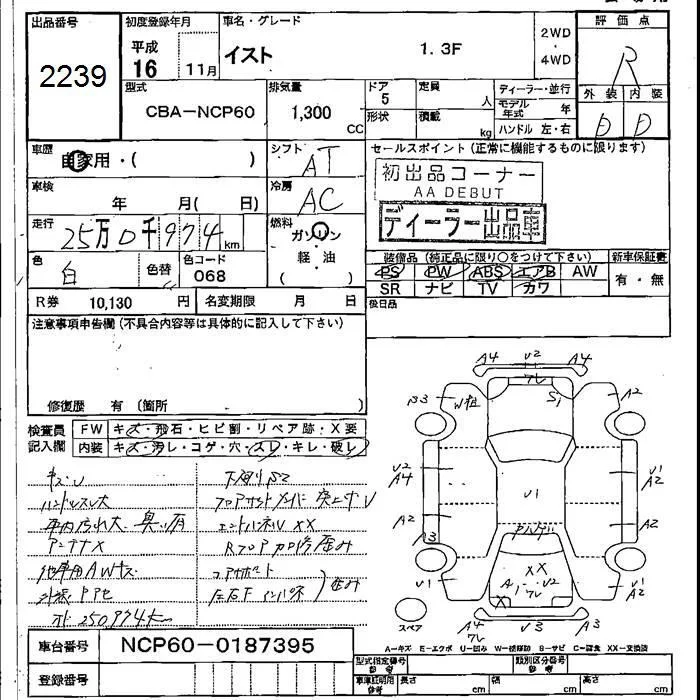 出品番号
2239
初度登録年月
平成
16 11月
車名・グレード
イスト 1.3F
2WD
・
4WD
評価点
R
外装 内装
D D
型式
CBA-NCP60
排気量
1,300 CC
ドア
5
形状
定員
人
積載
kg
ディーラー・並行
モデル年式 年
ハンドル 左・右
車歴
自家用・( )
シフト
AT
セールスポイント(正常に機能するものに限ります)
初出品コーナー
AA DEBUT
ディーラー出品車
車検
年 月( 日)
冷房
AC
走行
25万0千974km
燃料
ガソリン
軽・油
( )
色
白
色替
色コード
068
装備品(純正品に限り○をつけて下さい)
PS PW ABS エアB AW
SR ナビ TV カワ
新車保証書
有・無
R券 10,130 円
名変期限 月 日
後日品
注意事項申告欄(不具合内容等は具体的に記入して下さい)
修復歴 有(箇所 )
検査員
記入欄
FW キズ・飛石・ヒビ割・リペア跡・X要
内装 キズ・汚レ・コゲ・穴・スレ・キレ・破レ
キズ・U
下廻りS2
ハンドルスレ大
車内汚れ大・臭い有
アンテナX
エンドパネルXX
Rフロア
コアサポート
メーター 250974km
A4 U2 A4
フレ
B3 W板 S1 A2
U2
A4
U1
U1
A2
A2 A2
A3
XX
U1 A1 U2 U1
A2
フレ
X
A4
フレ
U3 A4
スペア
A-キズ E-エクボ U-凹み W-補修跡 S-サビ C-腐食 XX-交換済
車台番号 NCP60-0187395
登録番号
型式指定番号
参考
類別区分番号
参考
車庫証明用
参考
長さ cm
幅 cm
高さ cm